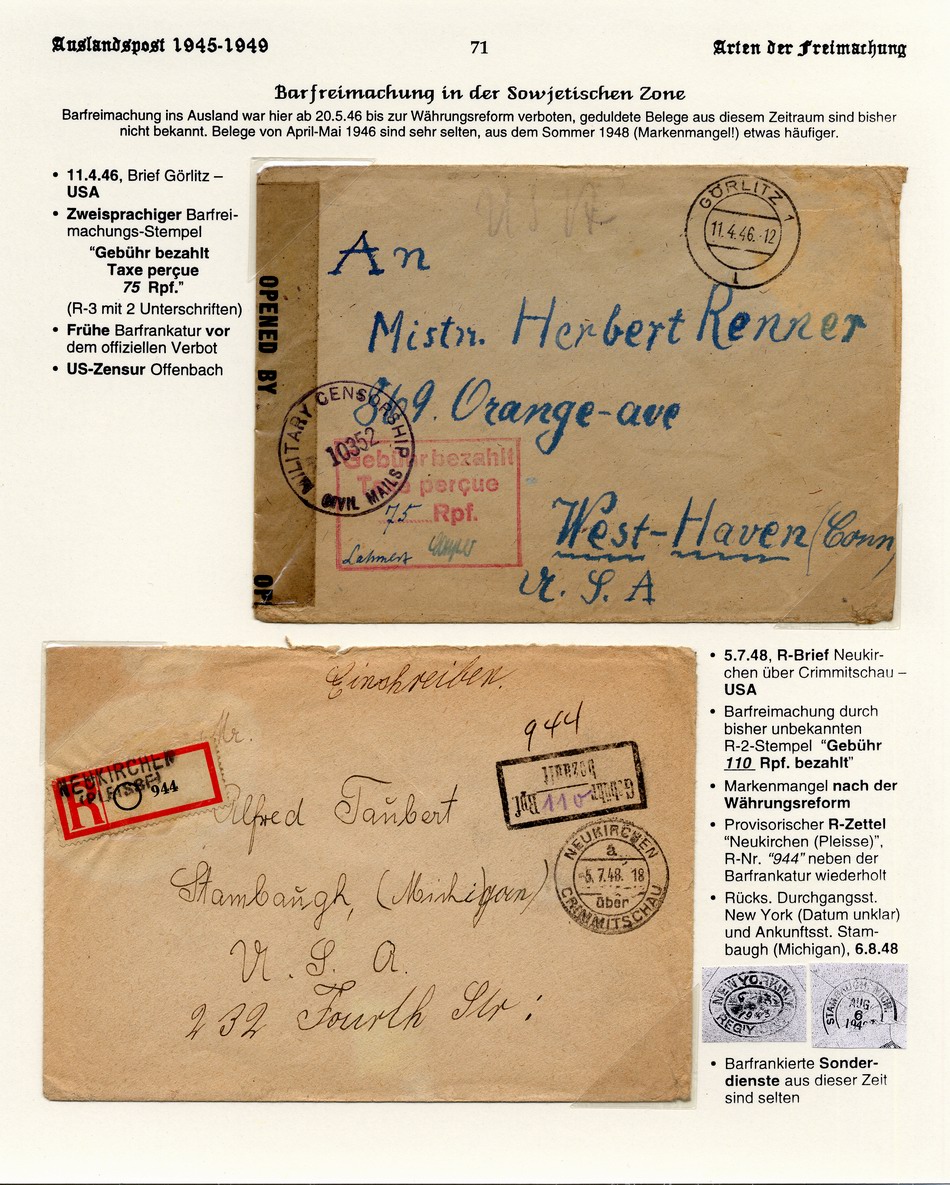 Auslandspost 1945-1949
71
Arten der Freimachung
Barfreimachung in der Sowjetischen Zone
Barfreimachung ins Ausland war hier ab 20.5.46 bis zur Währungsreform verboten, geduldete Belege aus diesem Zeitraum sind bisher
nicht bekannt. Belege von April-Mai 1946 sind sehr selten, aus dem Sommer 1948 (Markenmangel!) etwas häufiger.
• 11.4.46, Brief Görlitz –
USA
• Zweisprachiger Barfrei-
machungs-Stempel
“Gebühr bezahlt
Taxe perçue
75 Rpf.”
(R-3 mit 2 Unterschriften)
• Frühe Barfrankatur vor
dem offiziellen Verbot
• US-Zensur Offenbach
USA
GÖRLITZ 1
11.4.46.-12
1
OPENED BY
OP
An
Mistr. Herbert Renner
369. Orange-ave
West-Haven (Conn
U. S. A
MILITARY CENSORSHIP
10352
CIVIL MAILS
Gebühr bezahlt
Taxe perçue
75 Rpf.
Lahmert
Einschreiben.
944
NEUKIRCHEN
(PLEISSE)
R
944
Mr.
Alfred Taubert
Stambaugh, (Michigan)
U. S. A.
232 Fourth Str:
Gebühr
110 Rpf
bezahlt
NEUKIRCHEN
a
-5.7.48. 18
über
CRIMMITSCHAU
• 5.7.48, R-Brief Neukir-
chen über Crimmitschau –
USA
• Barfreimachung durch
bisher unbekannten
R-2-Stempel “Gebühr
110 Rpf. bezahlt”
• Markenmangel nach der
Währungsreform
• Provisorischer R-Zettel
“Neukirchen (Pleisse)”,
R-Nr. “944” neben der
Barfrankatur wiederholt
• Rücks. Durchgangsst.
New York (Datum unklar)
und Ankunftsst. Stam-
baugh (Michigan), 6.8.48
NEW YORK
REG'Y
AUG
6
• Barfrankierte Sonder-
dienste aus dieser Zeit
sind selten